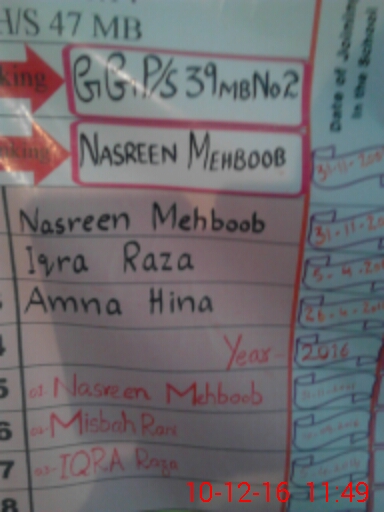 H/S 47 MB
king
GGP/S 39MB No2
Date of Joining
in the School
king
NASREEN MEHBOOB
31-11-20
Nasreen Mehboob
31-11-20
Iqra Raza
5-4-20
Amna Hina
26-4-20
4
Year- 2016
5 01. Nasreen Mehboob
6 02. Misbah Rani
7 03. IQRA Raza
8
10-12-16 11:49